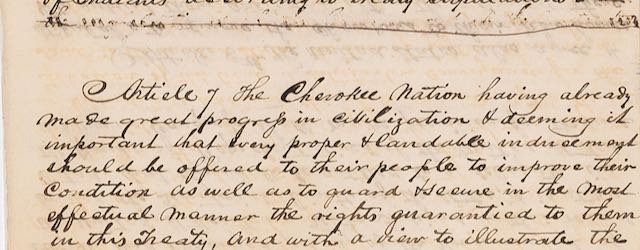 Article 7 The Cherokee Nation having already
made great progress in civilization & deeming it
important that every proper & landable inducement
should be offered to their people to improve their
Condition as well as to guard & secure in the most
effectual manner the rights guarantied to them
in this Treaty, and with a view to illustrate the